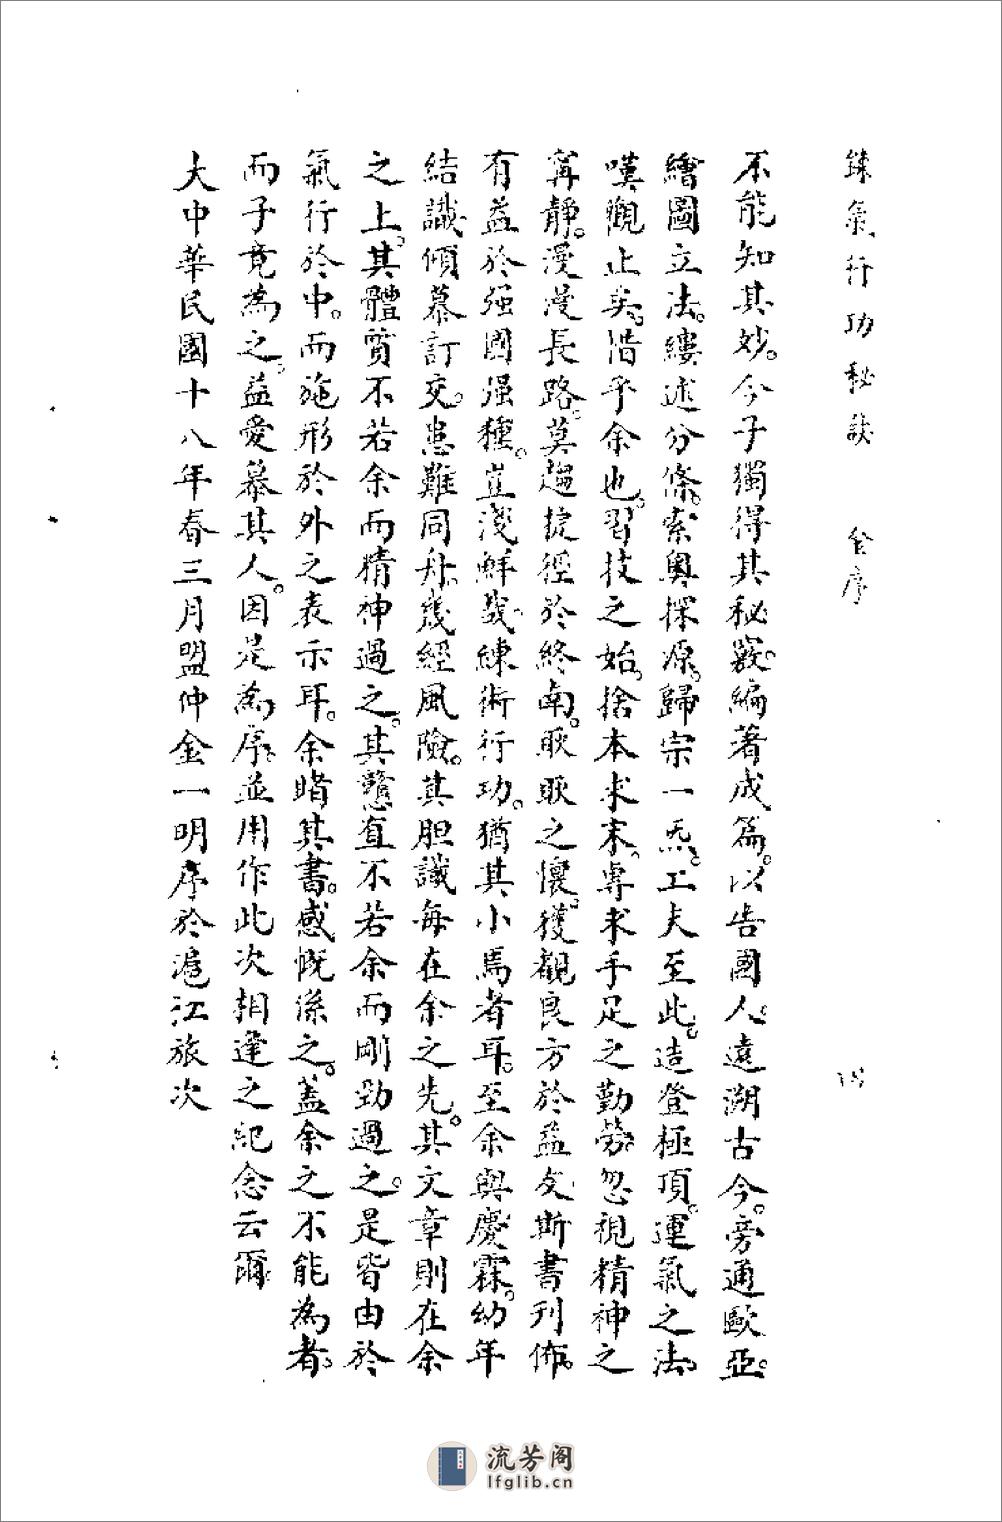 鍊氣行功秘訣　金序　四
不能知其妙。今子獨得其秘竅。編著成篇。以告國人。遠溯古今。旁通歐亞。
繪圖立法。縷述分條。索奧探源。歸宗一炁。工夫至此。造登極頂。運氣之法。
嘆觀止矣。惜乎余也。習技之始。捨本求末。專求手足之勤勞。忽視精神之
寗靜。漫漫長路。莫趨捷徑於終南。耿耿之懷。獲覩良方於益友。斯書刊佈。
有益於强國强種。豈淺鮮哉。練術行功。猶其小焉者耳。至余與慶霖。幼年
結識。傾慕訂交。患難同舟。幾經風險。其胆識每在余之先。其文章則在余
之上。其體質不若余而精神過之。其戇直不若余而剛勁過之。是皆由於
氣行於中。而施形於外之表示耳。余睹其書。感慨係之。蓋余之不能為者。
而子竟為之。益愛慕其人。因是為序。並用作此次相逢之紀念云爾。
大中華民國十八年春三月盟仲金一明序於滬江旅次
流芳阁
lfglib.cn